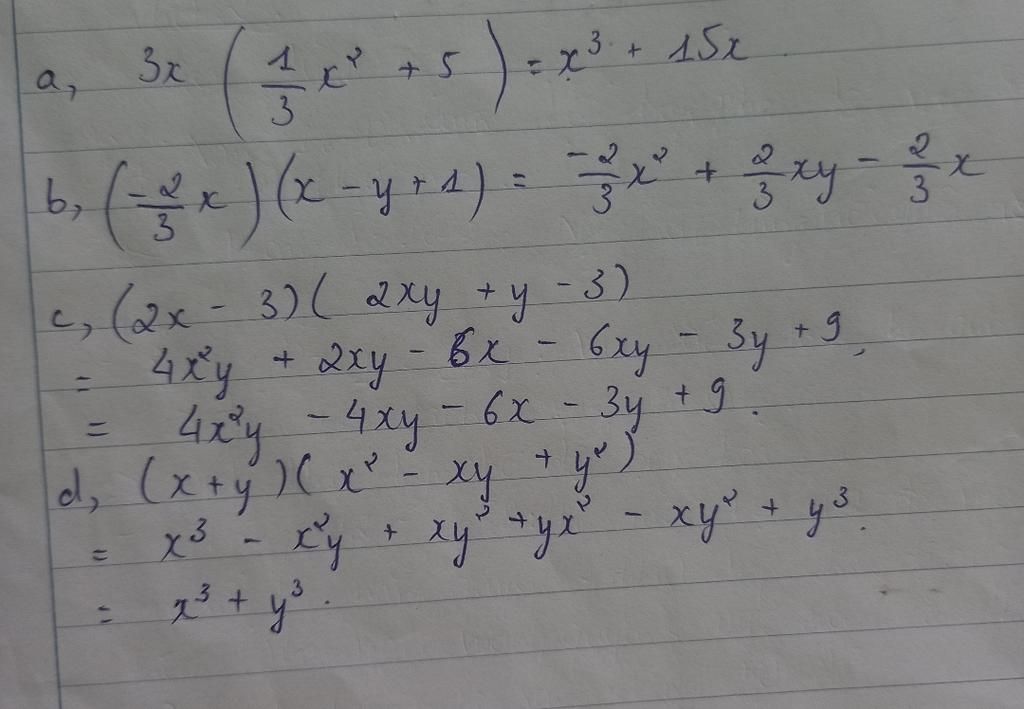 a, 3x (1/3 x² + 5) = x³ + 15x.
b, (-2/3 x)(x - y + 1) = -2/3 x² + 2/3 xy - 2/3 x
c, (2x - 3)( 2xy + y - 3)
= 4x²y + 2xy - 6x - 6xy - 3y + 9,
= 4x²y - 4xy - 6x - 3y + 9.
d, (x + y)( x² - xy + y²)
= x³ - x²y + xy² + yx² - xy² + y³.
= x³ + y³.